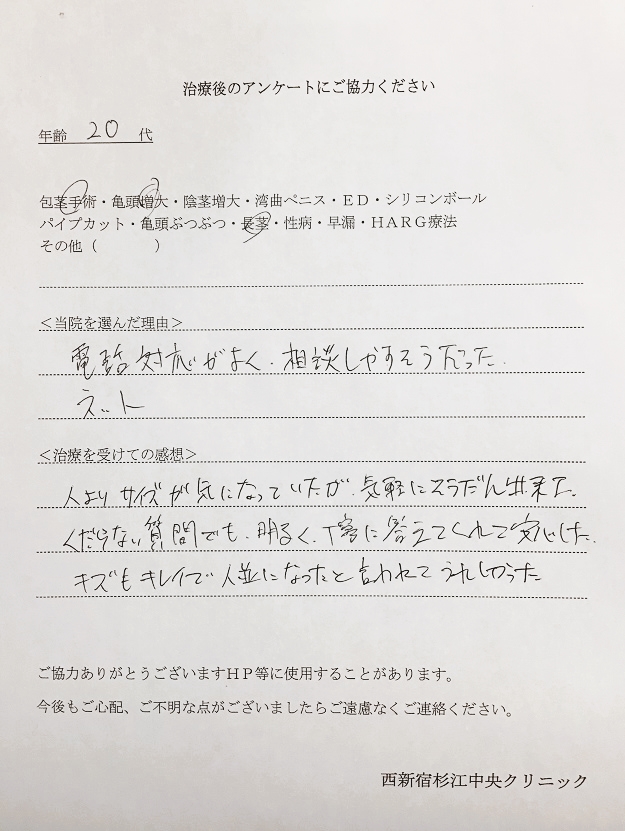 治療後のアンケートにご協力ください
年齢 20 代
包茎手術・亀頭増大・陰茎増大・湾曲ペニス・ED・シリコンボール
パイプカット・亀頭ぶつぶつ・長茎・性病・早漏・HARG療法
その他（　　　　）
＜当院を選んだ理由＞
電話対応がよく、相談しやすそうだった.
ネット
＜治療を受けての感想＞
人よりサイズが気になっていたが、気軽にそうだん出来た.
くだらない質問でも、明るく、丁寧に答えてくれて安心した.
キズもキレイで人並になったと言われてうれしかった
ご協力ありがとうございますHP等に使用することがあります。
今後もご心配、ご不明な点がございましたらご遠慮なくご連絡ください。
西新宿杉江中央クリニック